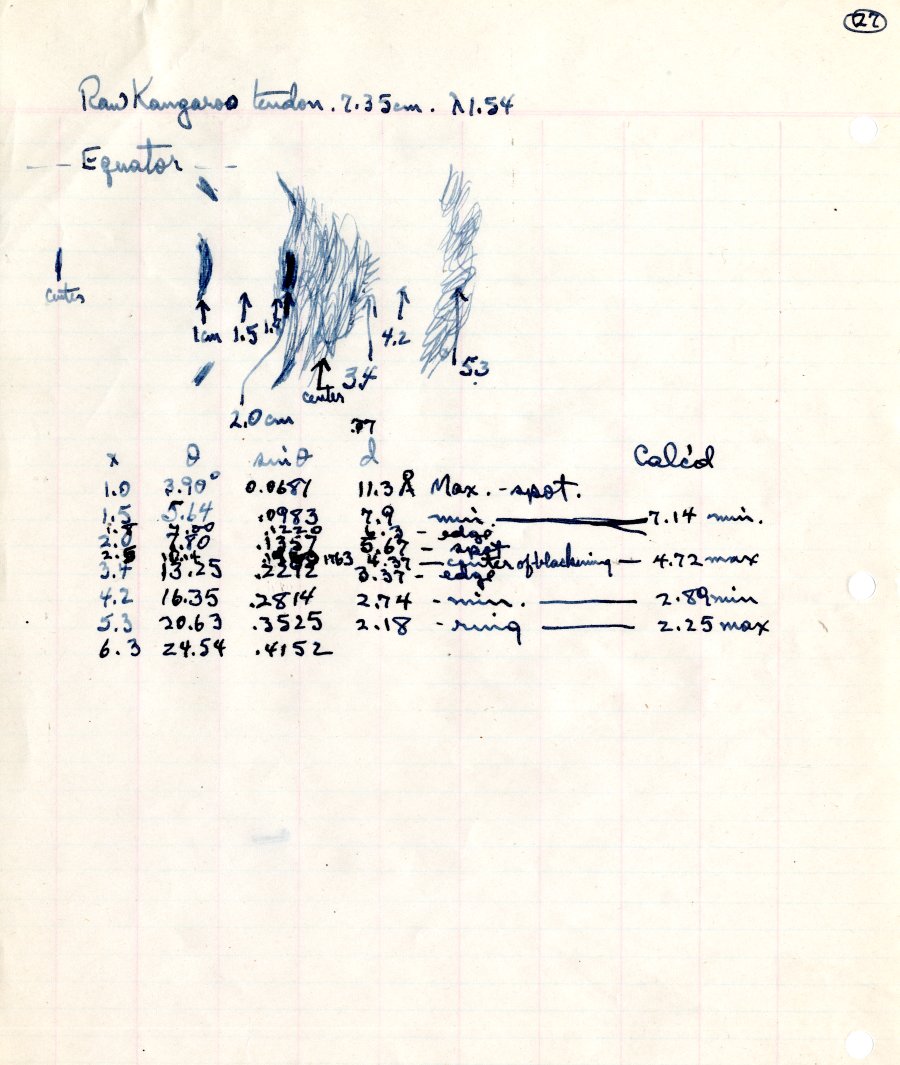 127
Raw Kangaroo tendon. 7.35cm. λ1.54
Equator
center
1cm 1.5 4.2
3.4 5.3
center
2.0 cm .77
x θ sinθ d Calc'd
1.0 3.90° 0.0681 11.3 Å Max. - spot.
1.5 5.64 .0983 7.9 min. 7.14 min.
1.8 7.00 .1220 6.3 - edge
2.0 7.80 .1357 5.67 - spot
2.6 .1763 4.37 - center of blackening - 4.72 max
3.4 13.25 .2292 3.37 - edge
4.2 16.35 .2814 2.74 - min. 2.89 min
5.3 20.63 .3525 2.18 - ring 2.25 max
6.3 24.54 .4152